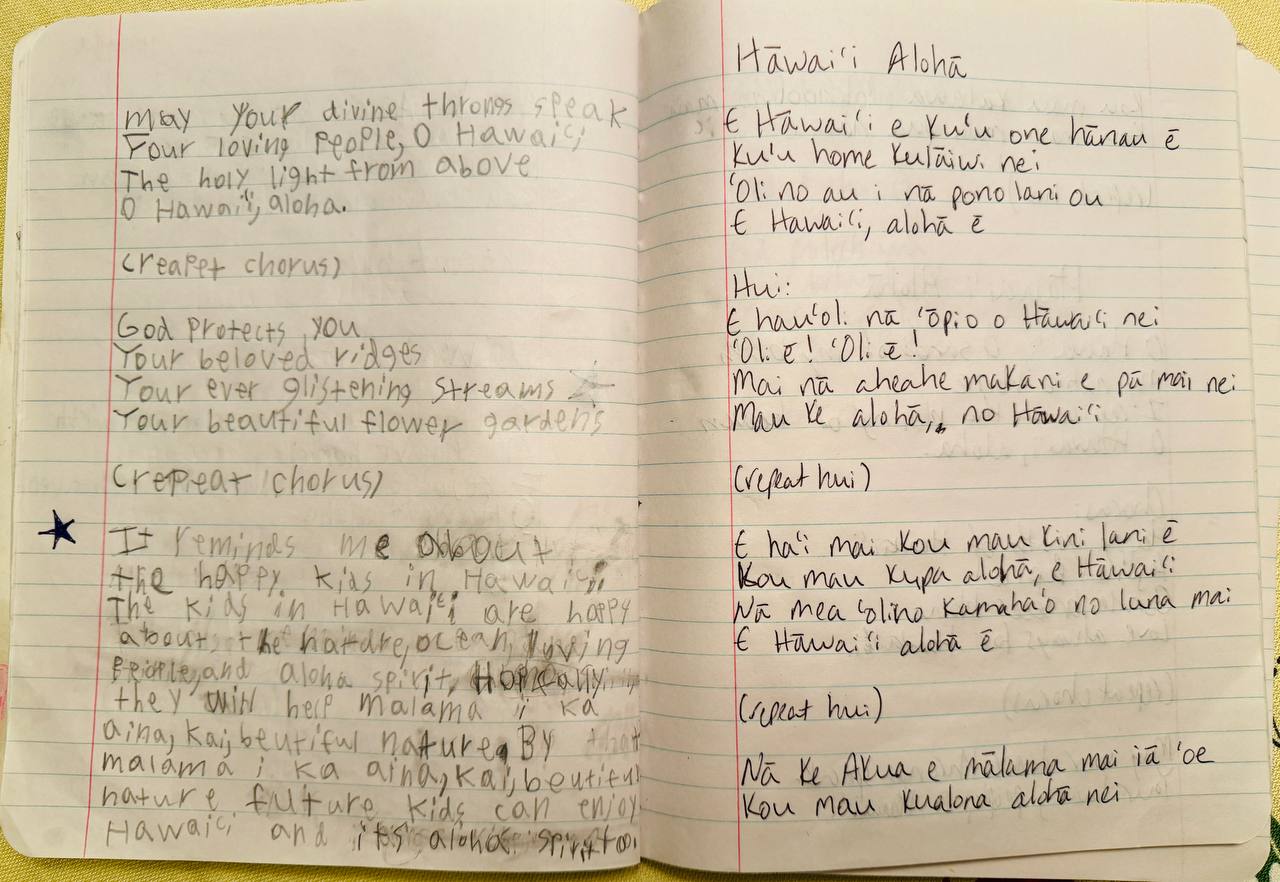 may your divine throngs speak
Your loving people, O Hawaiʻi
The holy light from above
O Hawaiʻi, aloha.
(reapet chorus)
God protects you
Your beloved ridges
Your ever glistening streams
Your beautiful flower gardens
(repeat chorus)
It reminds me about
the happy kids in Hawaiʻi.
The kids in Hawaiʻi are happy
about, the nature, ocean, lyving
people, and aloha spirit. Hopefully
they will help malama i ka
aina, kai, beutiful nature. By that
malama i ka aina, kai, beutiful
nature fulture kids can enjoy
Hawaiʻi and its aloha spirit too.
Hāwaiʻi Alohā
E Hāwaiʻi e kuʻu one hānau ē
Kuʻu home kulāiwi nei
ʻOli no au i nā pono lani ou
E Hawaiʻi, alohā ē
Hui:
E hauʻoli nā ʻōpio o Hāwaiʻi nei
ʻOli ē! ʻOli ē!
Mai nā aheahe makani e pā mai nei
Mau ke alohā, no Hāwaiʻi
(repeat hui)
E haʻi mai kou mau kini lani ē
Kou mau kupa alohā, e Hāwaiʻi
Nā mea ʻōlino kamahaʻo no luna mai
E Hāwaiʻi alohā ē
(repeat hui)
Nā ke Akua e mālama mai iā ʻoe
Kou mau kualona alohā nei